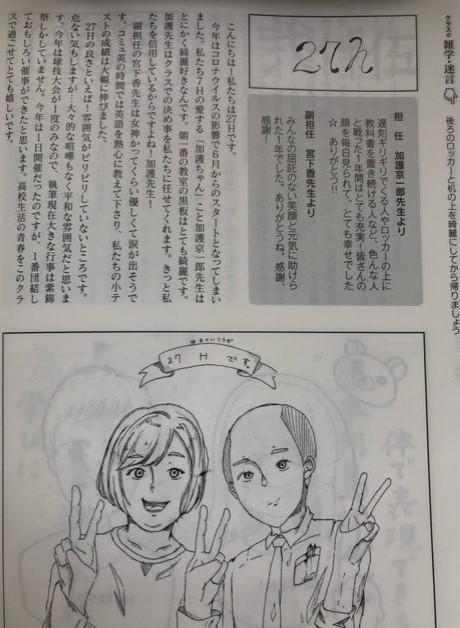 クラスの 雑学・迷言
後ろのロッカーと机の上を綺麗にしてから帰りましょう
27H
担 任 加護京一郎先生より
遅刻ギリギリでくる人やロッカーの上に
教科書を置き続ける人など、色んな人
と戦った1年間はとても充実!皆さんの
顔を毎日見られて、とても幸せでした
☆ ありがとう!!
副担任 宮下香先生より
みんなの屈託のない笑顔と元気に助けら
れた1年でした。ありがとうね。感謝、
感謝!
こんにちは!私たちは27Hです。
今年はコロナウイルスの影響で6月からのスタートとなってしまい
ました。私たち7Hの愛する「加護ちゃん」こと加護京一郎先生は
とにかく綺麗好きなんです。朝一番の教室の黒板はとても綺麗です。
加護先生はクラスでの決め事を私たちに任せてくれます。きっと私
たちを信用しているからですよね!加護先生!
副担任の宮下香先生は女神かつてくらい優しくて涙が出そうで
す。コミュ英の時間では英語を熱心に教えて下さり、私たちの小テ
ストの成績は大幅に伸びました。
27日の良さといえば!雰囲気がピリピリしていないところです。
危ない気もしますが…大々的な喧嘩もなく平和な雰囲気だと思いま
す。今年は球技大会が1度のみなので、執筆現在大きな行事は紫錦
祭しかしていません。今年は1日開催だったのですが、1番団結し
ておもしろい催事ができたと思います。高校生活の青春をこのクラ
スで過ごせてとても嬉しいです。
27 H です。